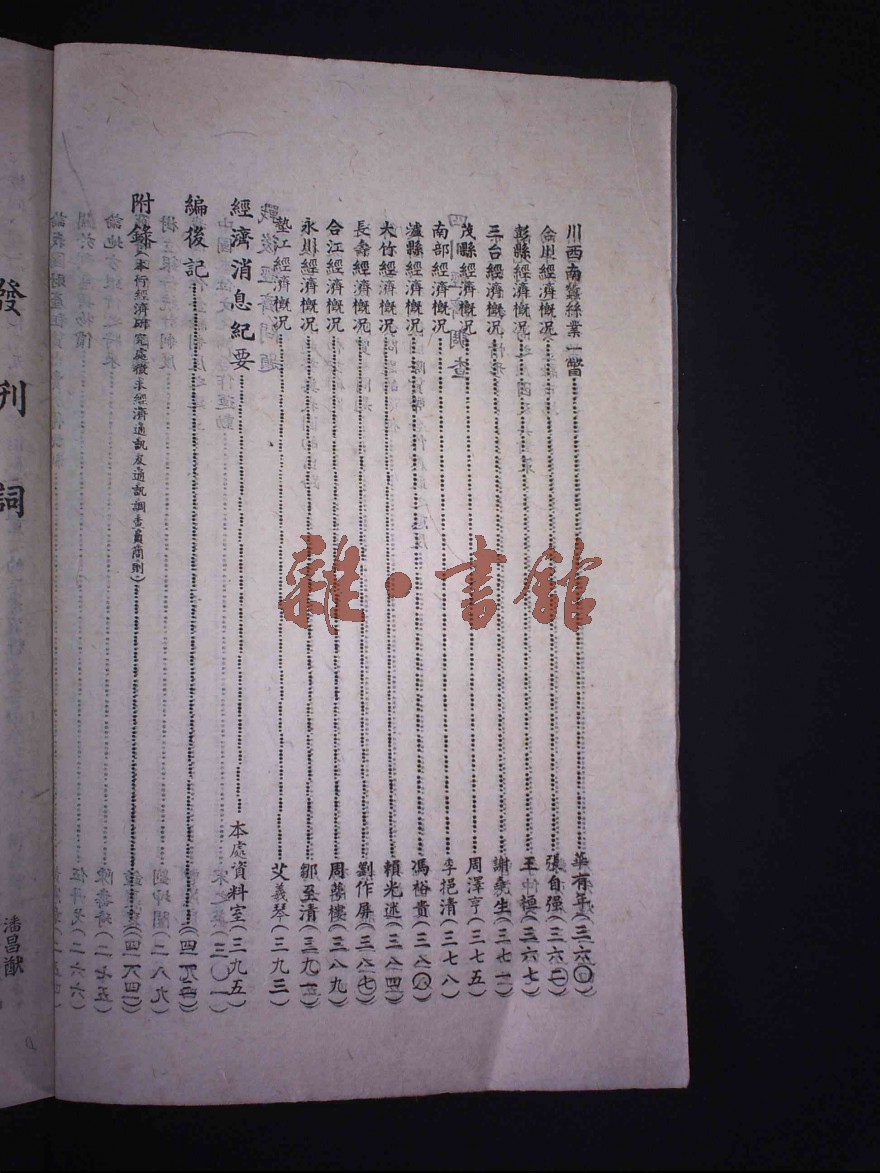 川西南蠶絲業一瞥……華有年(三六〇)
合川經濟概况……張自强(三六二)
彭縣經濟概况……王(三六七)
三台經濟概况……謝堯生(三七二)
茂縣經濟概况……周澤亨(三七五)
南部經濟概况……李挹清(三七八)
瀘縣經濟概况……馮裕貴(三八〇)
大竹經濟概况……賴光述(三八四)
長壽經濟概况……劉作屏(三八七)
合江經濟概况……周蕚樓(三八九)
永川經濟概况……鄒至清(三九一)
墊江經濟概况……艾義琴(三九三)
經濟消息紀要……本處資料室(三九五)
編後記……
附錄(本行經濟研究處徵求經濟通訊及通訊調查員簡則)……
發刊詞
潘昌猷
雜·書館